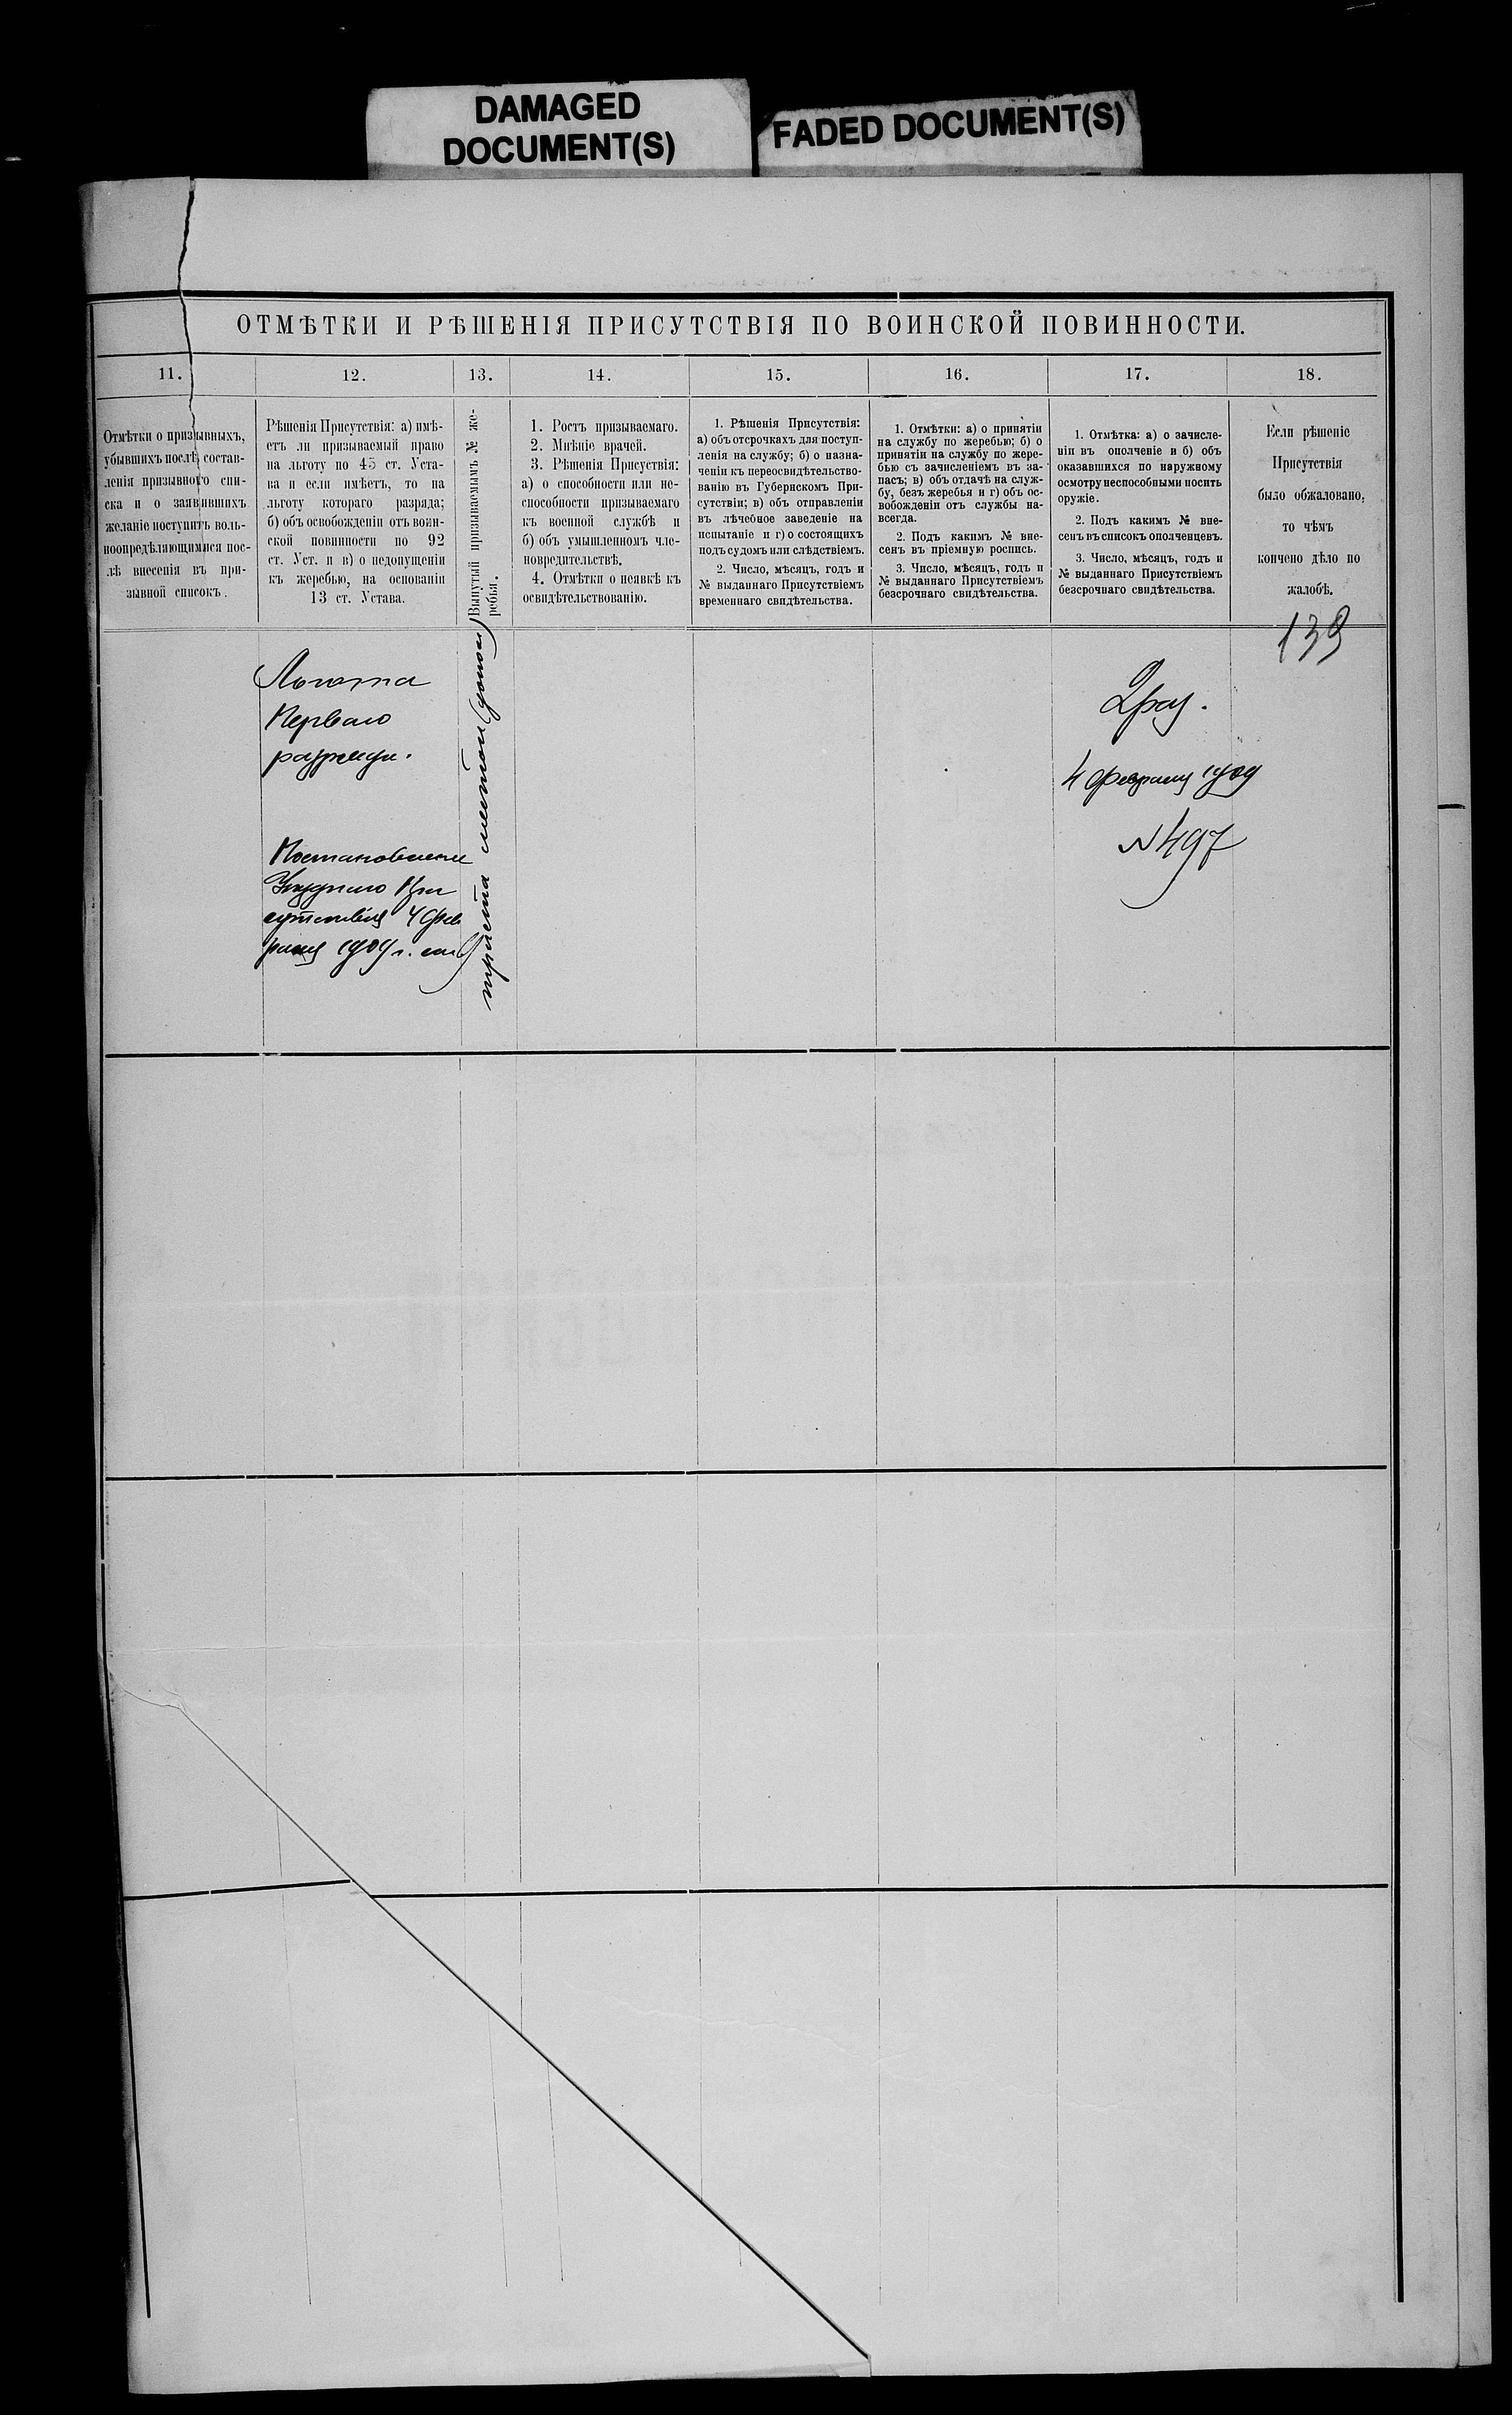 DAMAGED
DOCUMENT(S)
FADED DOCUMENT(S)
ОТМѢТКИ И РѢШЕНІЯ ПРИСУТСТВІЯ ПО ВОИНСКОЙ ПОВИННОСТИ.
11.
12.
13.
14.
15.
16.
17.
18.
Отмѣтки о призывныхъ,
убывшихъ послѣ состав-
ленія призывного спи-
ска и о заявившихъ
желаніе поступить воль-
ноопредѣляющимися пос-
лѣ внесенія въ при-
зывной списокъ.
Рѣшенія Присутствія: а) имѣ-
етъ ли призываемый право
на льготу по 45 ст. Уста-
ва и если имѣетъ, то на
льготу котораго разряда;
б) объ освобожденіи отъ воин-
ской повинности по 92
ст. Уст. и в) о недопущеніи
къ жеребью, на основаніи
13 ст. Устава.
Вынутый призываемымъ № же-
ребья.
1. Ростъ призываемаго.
2. Мнѣніе врачей.
3. Рѣшенія Присуствія:
а) о способности или не-
способности призываемаго
къ военной службѣ и
б) объ умышленномъ чле-
новредительствѣ.
4. Отмѣтки о неявкѣ къ
освидѣтельствованію.
1. Рѣшенія Присутствія:
а) объ отсрочкахъ для поступ-
ленія на службу; б) о назна-
ченіи къ переосвидѣтельство-
ванію въ Губернскомъ При-
сутствіи; в) объ отправленіи
въ лѣчебное заведеніе на
испытаніе и г) о состоящихъ
подъ судомъ или слѣдствіемъ.
2. Число, мѣсяцъ, годъ и
№ выданнаго Присутствіемъ
временнаго свидѣтельства.
1. Отмѣтки: а) о принятіи
на службу по жеребью; б) о
принятіи на службу по жере-
бью съ зачисленіемъ въ за-
пасъ; в) объ отдачѣ на служ-
бу, безъ жеребья и г) объ ос-
вобожденіи отъ службы на-
всегда.
2. Подъ какимъ № вне-
сенъ въ пріемную роспись.
3. Число, мѣсяцъ, годъ и
№ выданнаго Присутствіемъ
безсрочнаго свидѣтельства.
1. Отмѣтка: а) о зачисле-
ніи въ ополченіе и б) объ
оказавшихся по наружному
осмотру неспособными носить
оружіе.
2. Подъ какимъ № вне-
сенъ въ списокъ ополченцевъ.
3. Число, мѣсяцъ, годъ и
№ выданнаго Присутствіемъ
безсрочнаго свидѣтельства.
Если рѣшеніе
Присутствія
было обжаловано,
то чѣмъ
кончено дѣло по
жалобѣ.
139
Льгота
Перваго
разряда.
Постановленіе
Уѣзднаго При
сутствія 4 Фев
раля 1909 г.
2 раз.
4 Февраля 1909
N 497